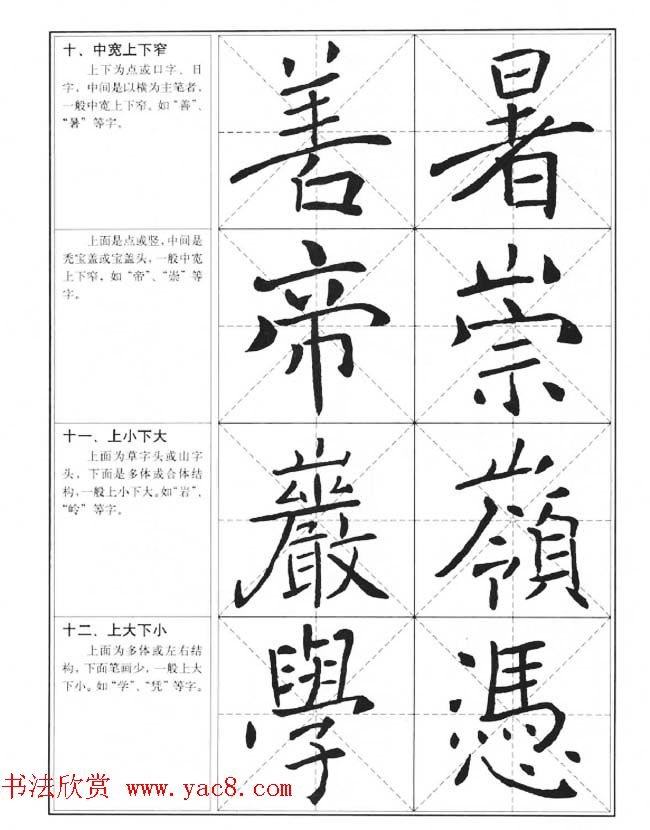 十、中宽上下窄
上下为点或口字、日
字，中间是以横为主笔者，
一般中宽上下窄。如“善”、
“暑”等字。
善 暑
上面是点或竖，中间是
秃宝盖或宝盖头，一般中宽
上下窄，如“帝”、“崇”等
字。
帝 崇
十一、上小下大
上面为草字头或山字
头，下面是多体或合体结
构，一般上小下大。如“岩”、
“岭”等字。
巖 嶺
十二、上大下小
上面为多体或左右结
构，下面笔画少，一般上大
下小。如“学”、“凭”等字。
學 憑
书法欣赏 www.yac8.com